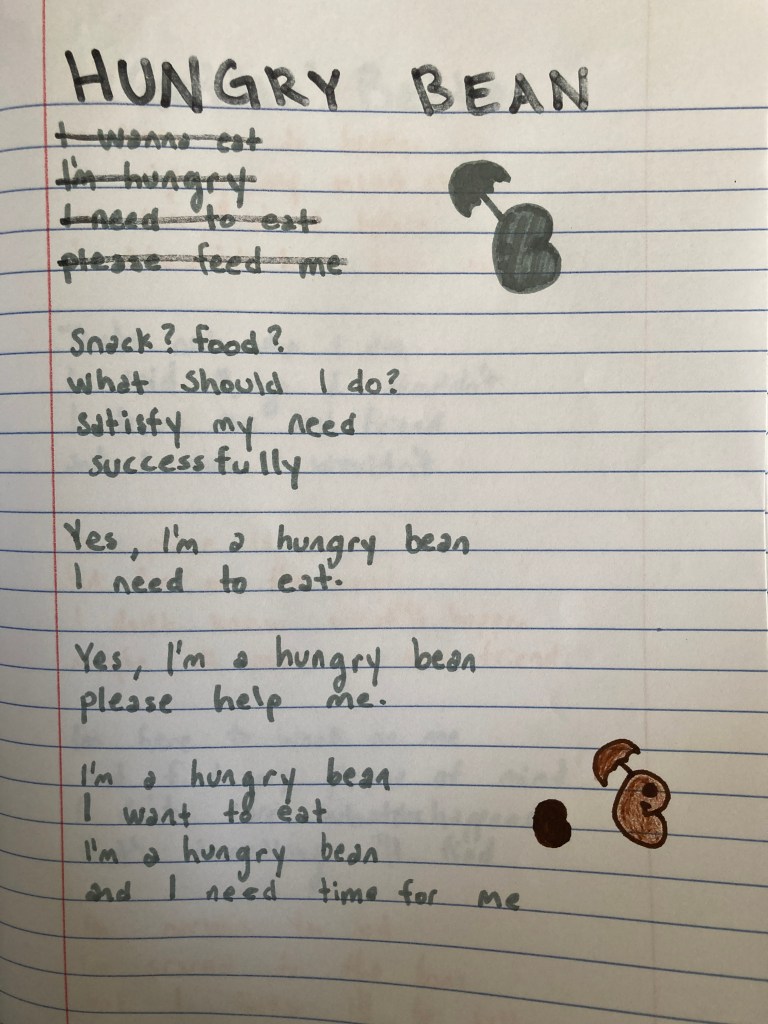 HUNGRY BEAN
I wanna eat
I'm hungry
I need to eat
please feed me
Snack? food?
What should I do?
satisfy my need
successfully
Yes, I'm a hungry bean
I need to eat.
Yes, I'm a hungry bean
please help me.
I'm a hungry bean
I want to eat
I'm a hungry bean
and I need time for me